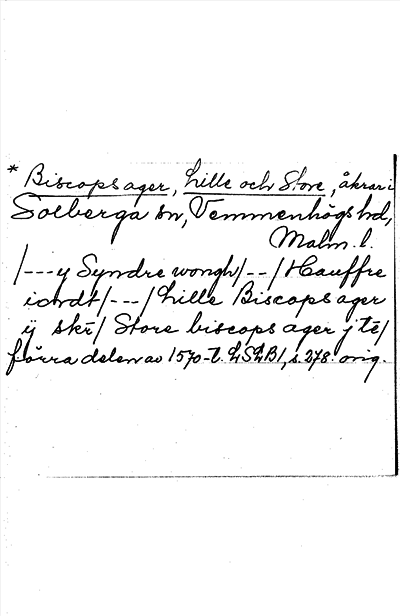 * Biscops ager, Lille och Store, åkrar i
Solberga sn, Vemmenhögs hd,
Malm. l.
/---y Syndre wongh/--/Hauffre
iordt/---/Lille Biscops ager
ÿ skr̄/ Store biscops ager j te/
förra delen av 1570-t. LSLB1, s. 278. orig.